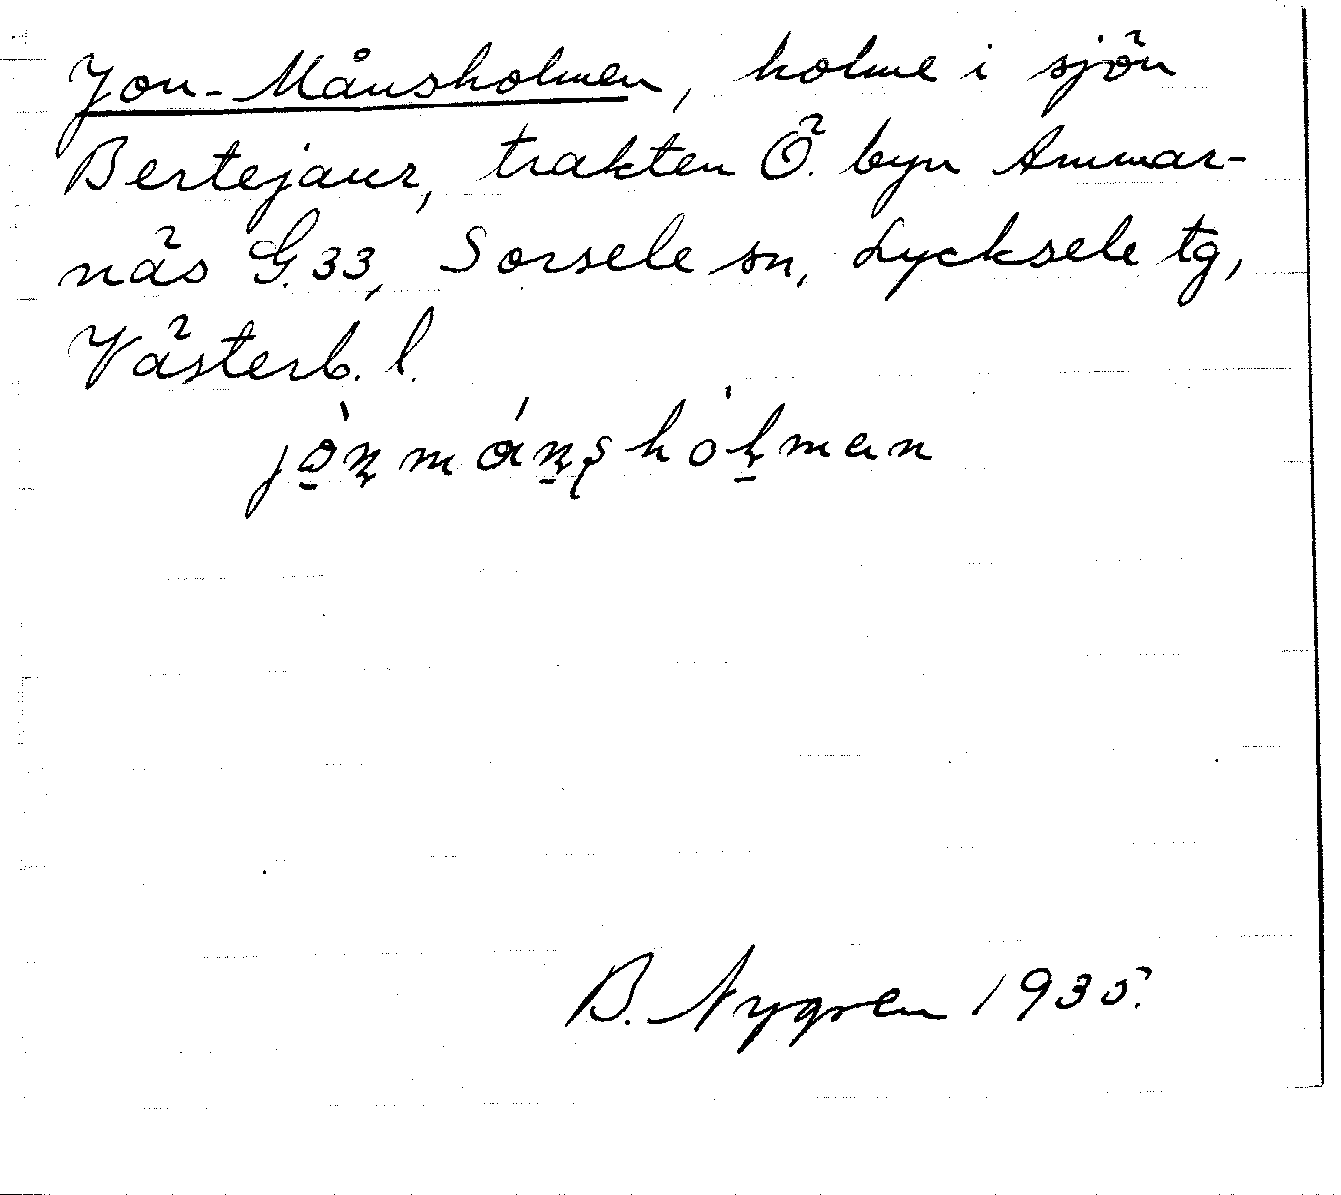 Jon-Månsholmen, holme i sjön
Bertejaur, trakten Ö. byn Ammar-
näs G.33, Sorsele sn, Lycksele tg,
Västerb. l.
jo̱nmánsholman
B. Nygren 1935.